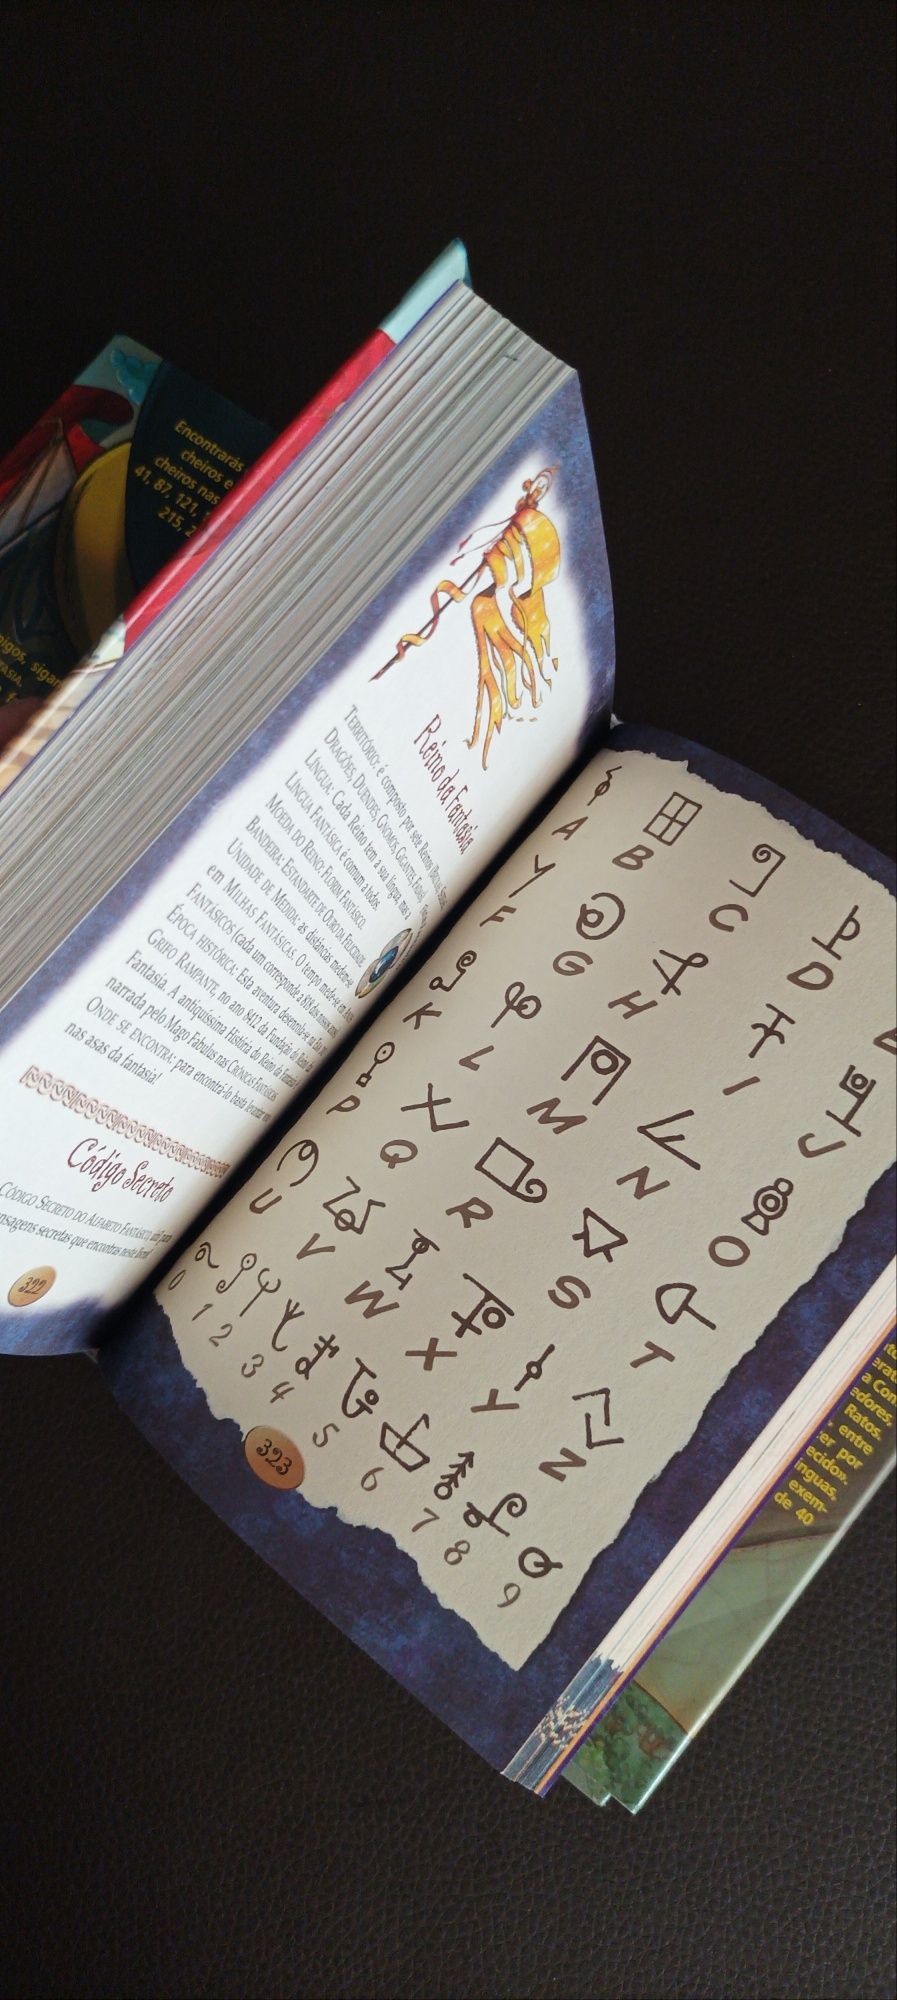 Encontrarás
cheiros e
cheiros nas
41, 87, 121,
215, 2
Reino da Fantasia
TERRITÓRIO: é composto por sete Reinos
DRAGÕES, DUENDES, GNOMOS, GIGANTES, FADAS
LÍNGUA: Cada Reino tem a sua língua, mas a
LÍNGUA FANTÁSICA é comum a todos.
MOEDA DO REINO: FLORIM FANTÁSICO.
BANDEIRA: ESTANDARTE DE OURO DA FELICIDADE.
UNIDADE DE MEDIDA: as distâncias medem-se
em MILHAS FANTÁSICAS. O tempo mede-se em
FANTÁSICOS (cada um corresponde a
ÉPOCA HISTÓRICA: Esta aventura desenrola-se no
GRIFO RAMPANTE, no ano 8412 da Fundação do Reino da
Fantasia. A antiquíssima História do Reino da Fantasia é
narrada pelo Mago Fabulus nas CRÓNICAS FANTÁSICAS
ONDE SE ENCONTRA: para encontrá-lo basta levantar voo
nas asas da fantasia!
Código Secreto
CÓDIGO SECRETO DO ALFABETO FANTÁSICO,
mensagens secretas que encontras neste livro!
322
A B C D
F G H I J
K L M N O
P Q R S T
U V W X Y Z
0 1 2 3 4 5 6 7 8 9
323
a Con
edores,
Ratos.
, entre
er por
ecido».
ínguas,
exem-
de 40